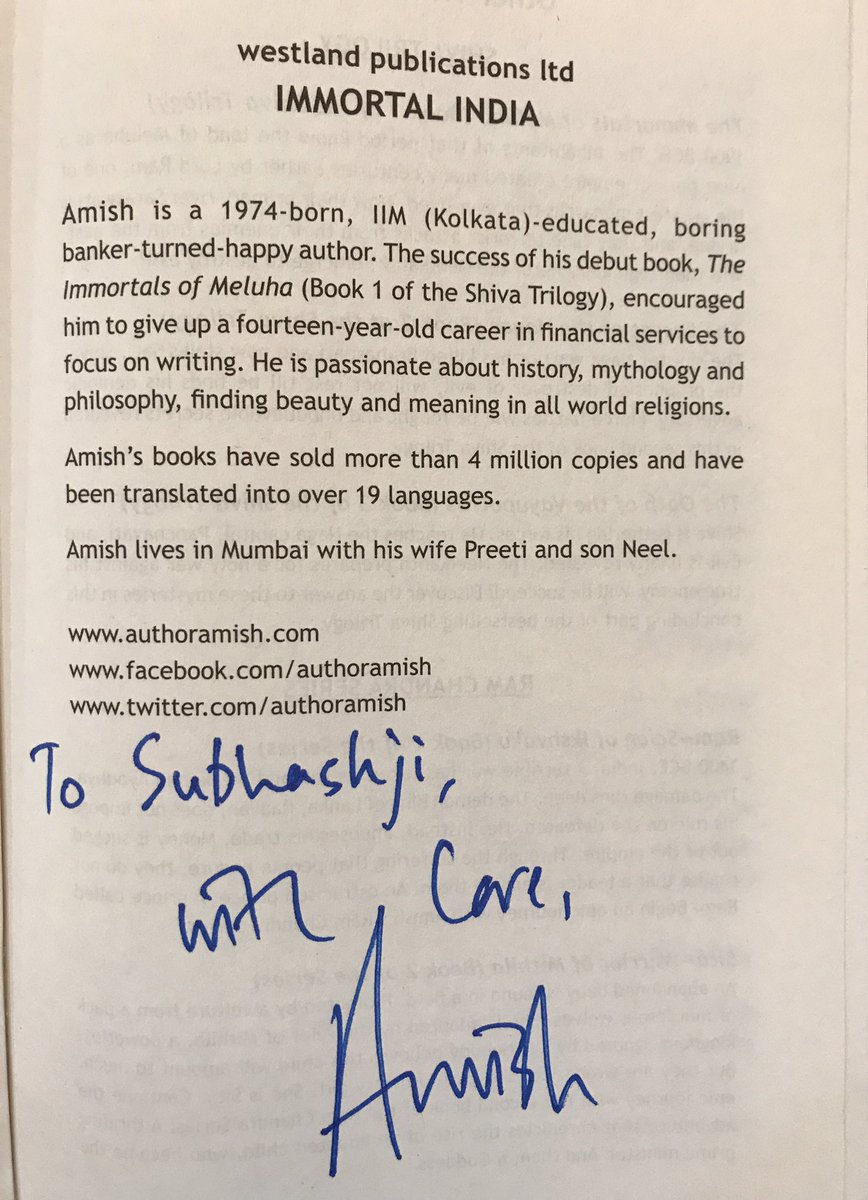 westland publications ltd
IMMORTAL INDIA
Amish is a 1974-born, IIM (Kolkata)-educated, boring
banker-turned-happy author. The success of his debut book, The
Immortals of Meluha (Book 1 of the Shiva Trilogy), encouraged
him to give up a fourteen-year-old career in financial services to
focus on writing. He is passionate about history, mythology and
philosophy, finding beauty and meaning in all world religions.
Amish's books have sold more than 4 million copies and have
been translated into over 19 languages.
Amish lives in Mumbai with his wife Preeti and son Neel.
www.authoramish.com
www.facebook.com/authoramish
www.twitter.com/authoramish
To Subhashji,
with Care,
Amish